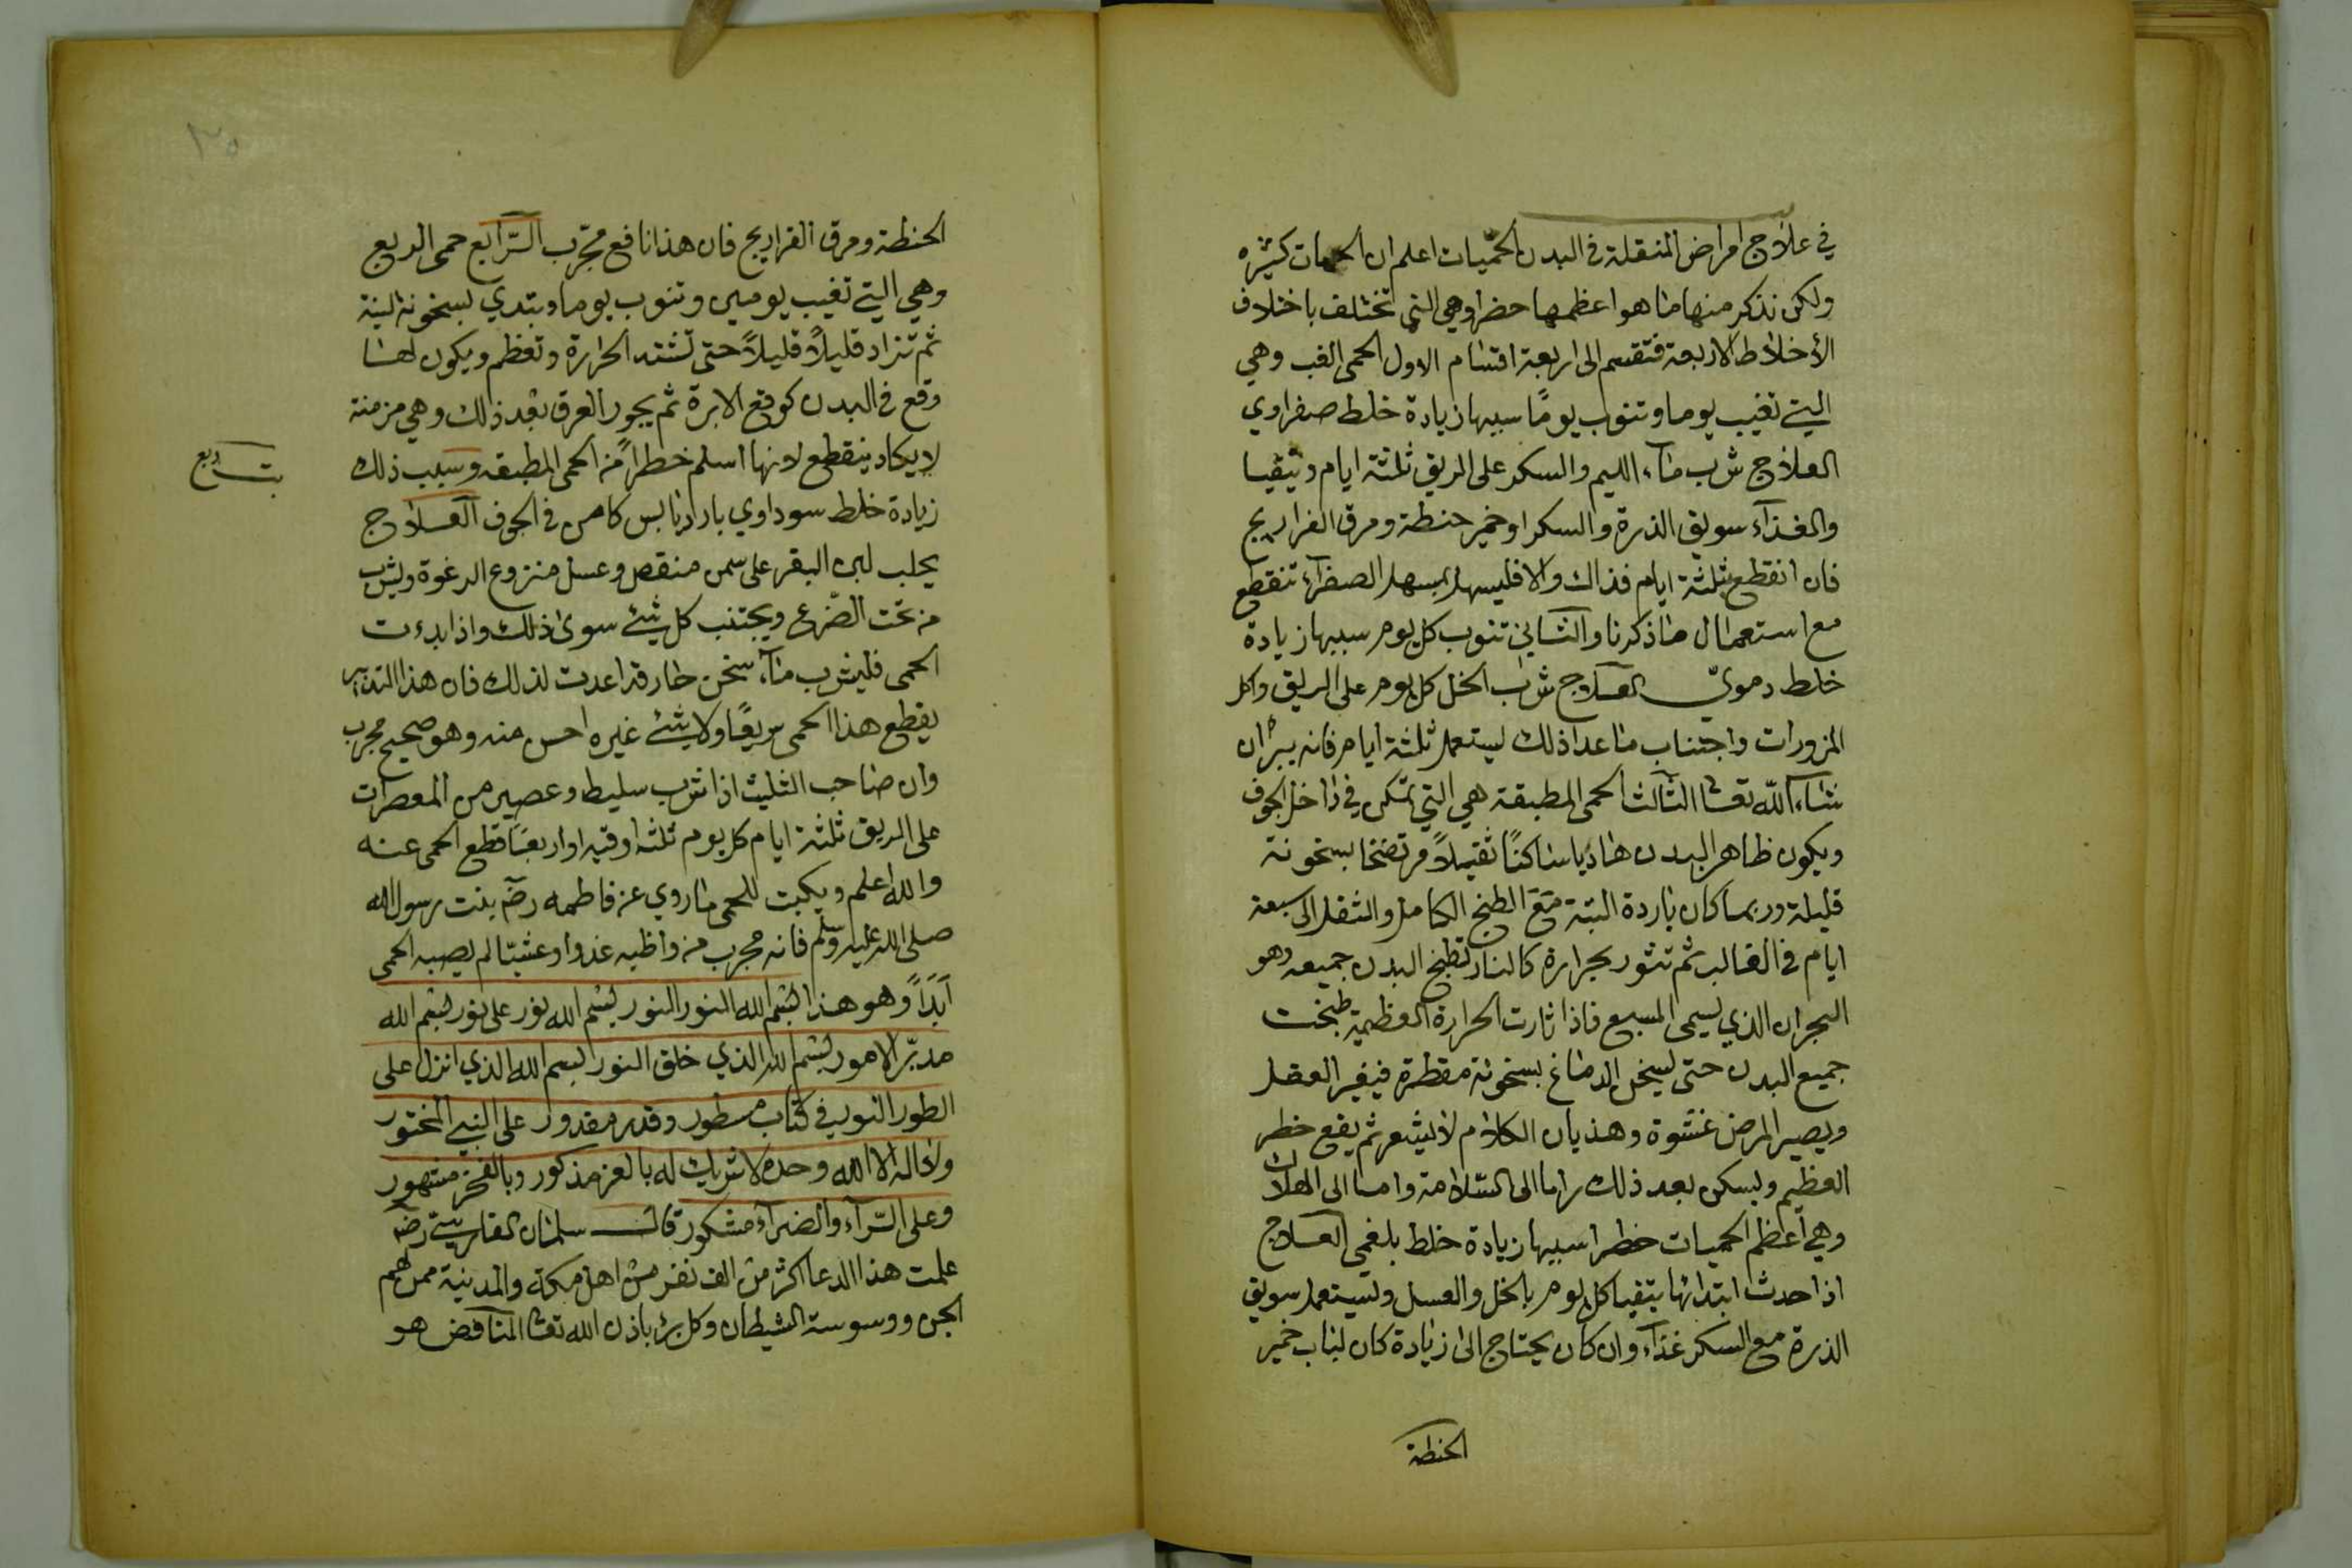 في علاج امراض المنتقلة في البدن الحميات اعلم ان الحميات كثيره
ولكن نذكر منها ما هو اعظمها خطرا وهي التي تختلف باختلاف
الأخلاط الاربعة فتقسم الى اربعة اقسام الاول الحمى الغب وهي
التي تغيب يوما وتنوب يومًا سببها زيادة خلط صفراوي
العلاج شرب ماء الليم والسكر على الريق ثلثة ايام ويتقيا
والغذآء سويق الذرة والسكر او خمير حنطة ومرق الفراريج
فان انقطع بثلثة ايام فذاك والا فليسهل بمسهل الصفرآء تنقطع
مع استعمال ما ذكرنا والثاني تنوب كل يوم سببها زيادة
خلط دمويّ العلاج شراب الخل كل يوم على الريق واكل
المزورات واجتناب ما عدا ذلك يستعمل ثلثة ايام فانه يبرأ ان
شاء الله تعالى الثالث الحمى المطبقة هي التي تمكن في داخل الجوف
ويكون ظاهر البدن هاديا ساكنًا ثقيلاً مرتضخا بسخونة
قليلة وربما كان باردة البتة مع الطبخ الكامل والثقل الى سبعة
ايام في الغالب ثم تثور بحرارة كالنار تطبخ البدن جميعه وهو
البحران الذي يسمى المسبع فاذا ثارت الحرارة العظيمة طبخت
جميع البدن حتى يسخن الدماغ بسخونة مفطرة فيغير العقل
ويصير المرض غشوة وهذيان الكلام لا يشعر ثم يقع خطر
العظيم ويسكن بعد ذلك اما الى السلامة واما الى الهلاك
وهي أعظم الحميات خطرا سببها زيادة خلط بلغمي العلاج
اذا حدث ابتدائها يتقيا كل يوم بالخل والعسل ويستعمل سويق
الذرة مع السكر غذآء وان كان يحتاج الى زيادة كان لباب خمير
الحنطة
الحنطة ومرق الفراريج فان هذا نافع مجرّب الرّابع حمى الربع
وهي التي تغيب يومين وتنوب يوما وتبتدي بسخونة لينة
ثم تزاد قليلاً قليلاً حتى تشتد الحرارة وتعظم ويكون لها
وقع في البدن كوقع الابرة ثم يجور العرق بعد ذلك وهي مزمنة
لا يكاد ينقطع لانها اسلم خطراً من الحمى المطبقه وسبب ذلك
زيادة خلط سوداوي بارد يابس كامن في الجوف العلاج
يحلب لبن البقر على سمن منقص وعسل منزوع الرغوة ويشرب
من تحت الضّرع ويجتنب كل شئ سوى ذلك واذا بدءت
الحمى فليشرب مآء سخن حار قد اعدت لذلك فان هذا التدبير
يقطع هذا الحمى سريعًا ولا شئ غيره احسن منه وهو صحيح مجرب
وان صاحب الثليث اذا شرب سليط وعصير من المعصرات
على الريق ثلثة ايام كل يوم ثلثه اوقيه او اربعا قطع الحمى عنه
والله اعلم ويكتب للحمى ما روي عن فاطمه رضٓ بنت رسول الله
صلى الله عليه وسلم فانه مجرب من واظبه غدوا وعشيّا لم يصيبه الحمى
أبداً وهو هذا بسم الله النور النور بسم الله نور على نور بسم الله
مدبّر الامور بسم الله الذي خلق النور بسم الله الذي انزل على
الطور النور في كتاب مسطور وقدر مقدور على النبي المختور
ولا اله الا الله وحده لا شريك له بالعز مذكور وبالفخر مشهور
وعلى السّرآء والضرآء مشكور قال سلمان الفارسي رضٓ
علمت هذا الدعا اكثر من الف نفر من اهل مكة والمدينة ممن لهم
الجن ووسوسة الشيطان وكل برئ باذن الله تعالى النافض هو